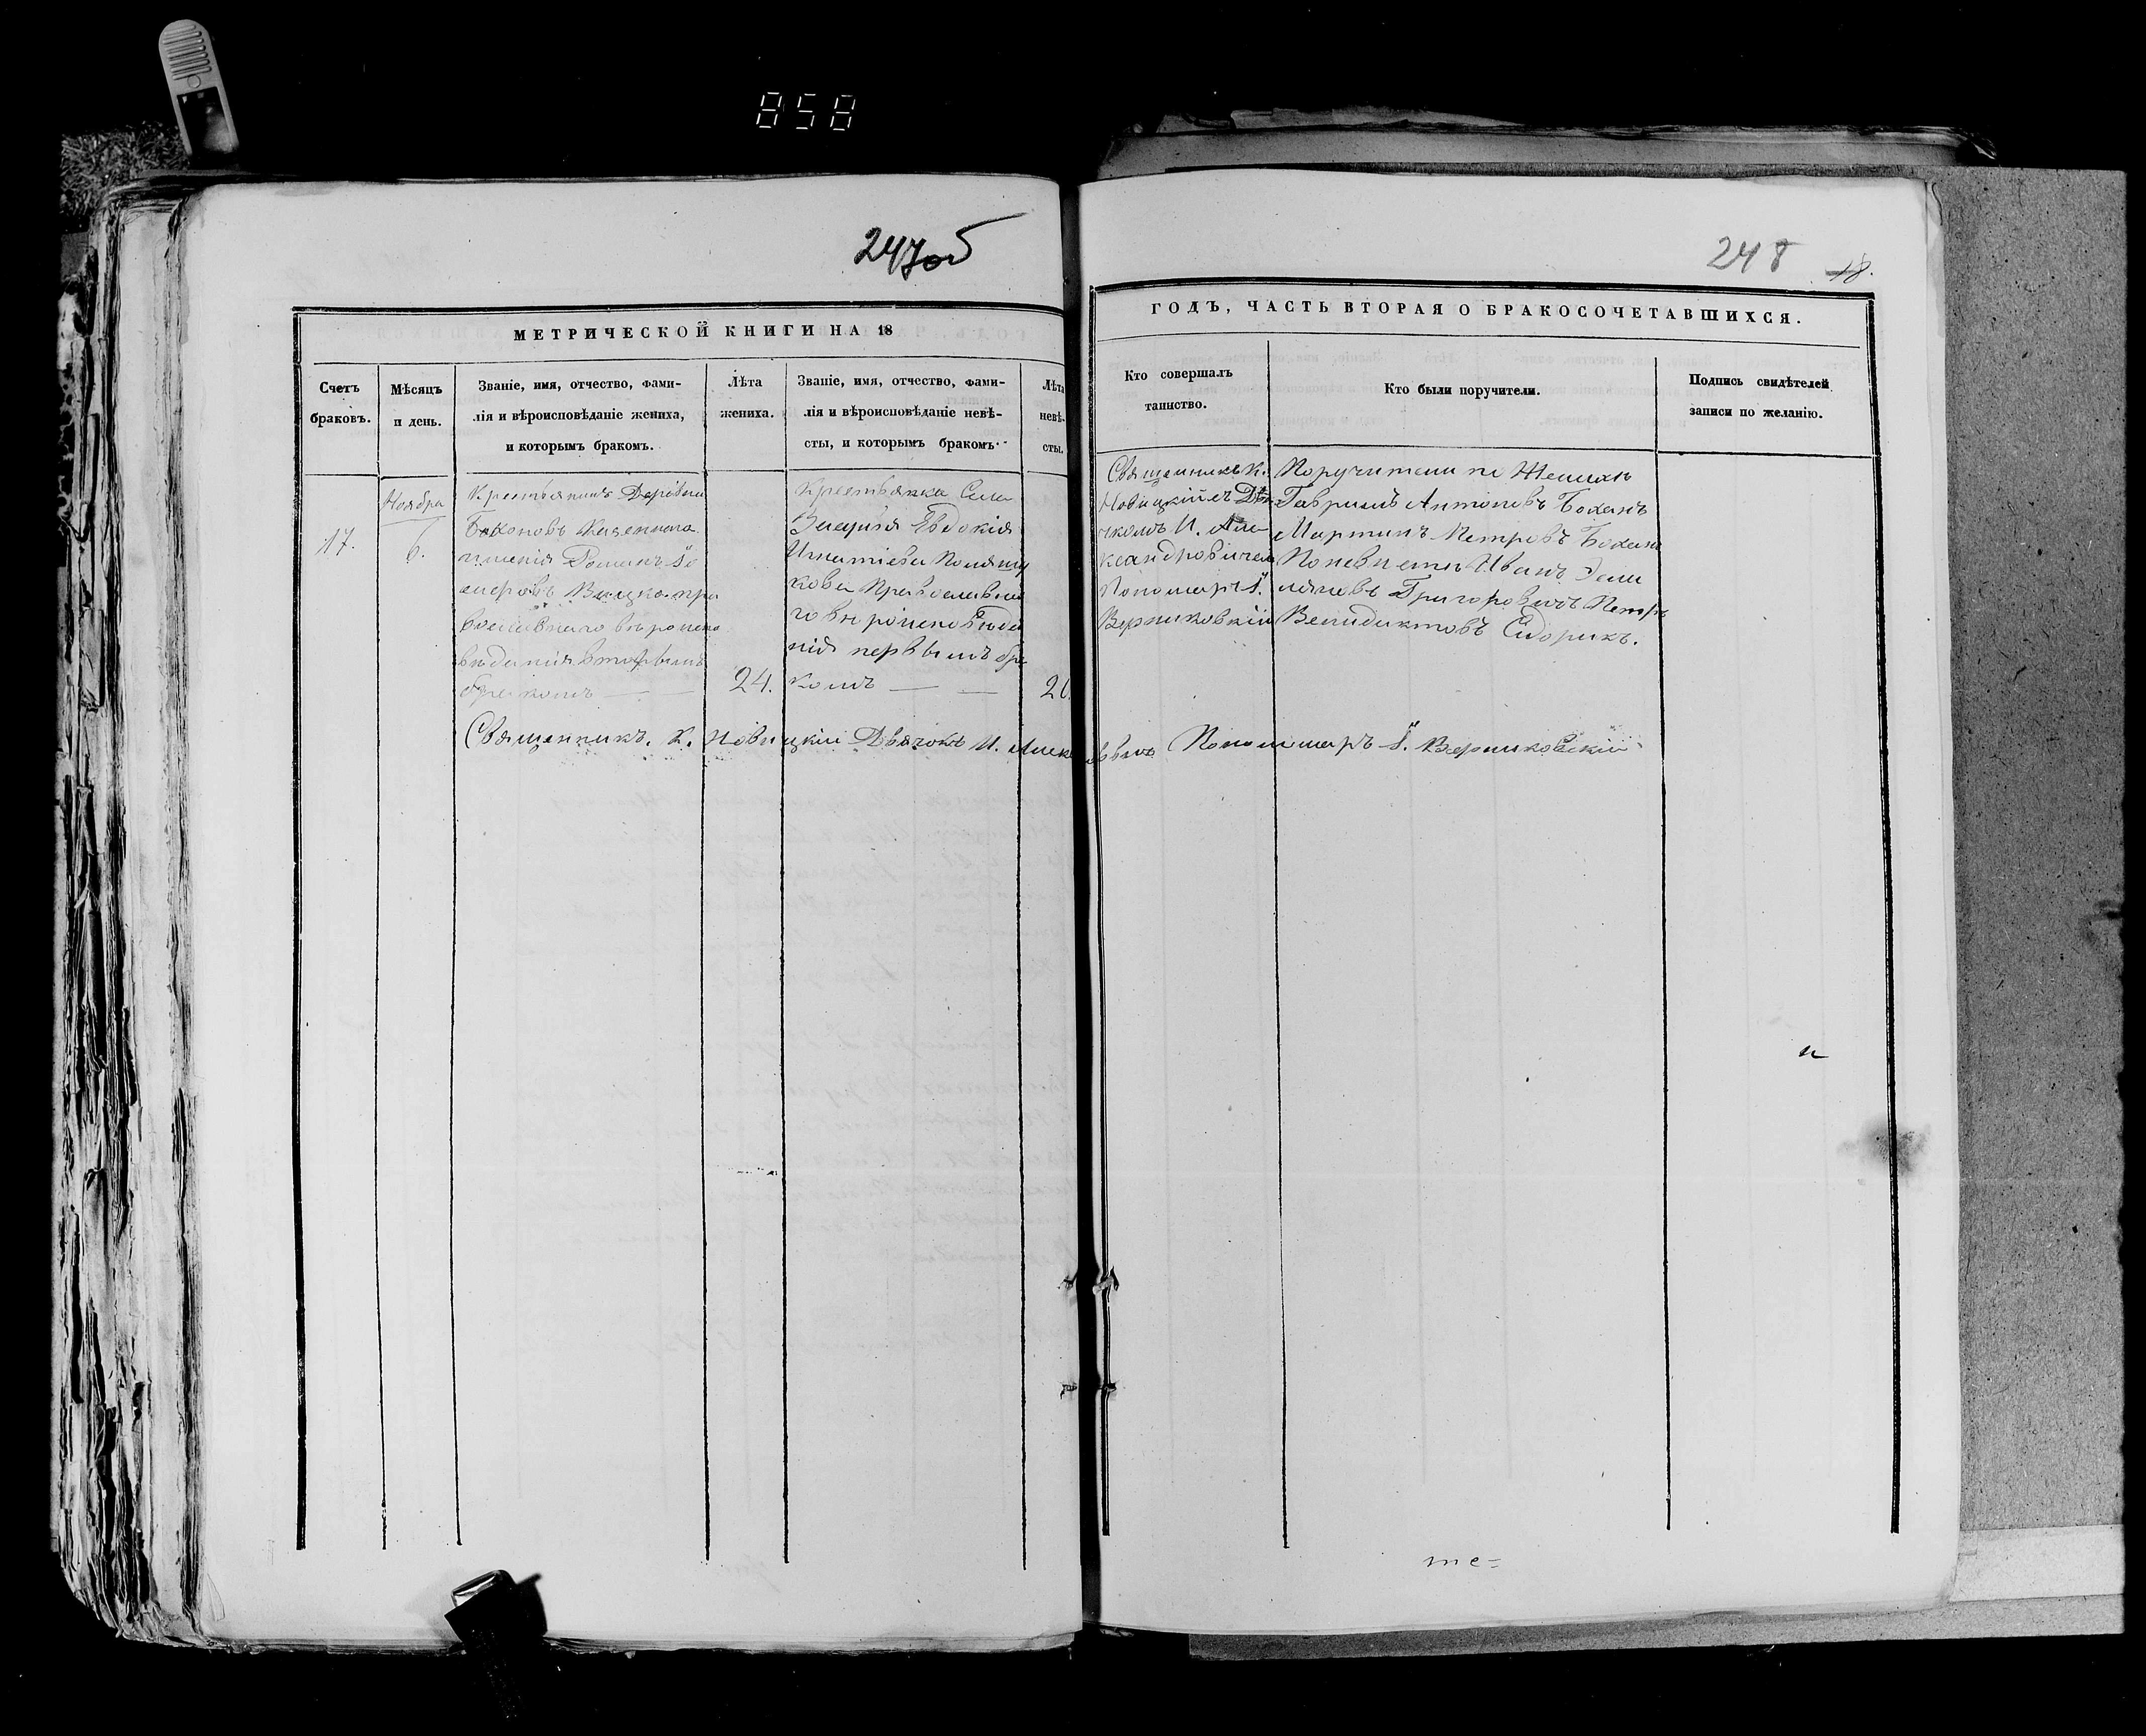 858
247об
248
18.
МЕТРИЧЕСКОЙ КНИГИ НА 18
ГОДЪ, ЧАСТЬ ВТОРАЯ О БРАКОСОЧЕТАВШИХСЯ.
Счетъ
браковъ.
Мѣсяцъ
и день.
Званіе, имя, отчество, фами-
лія и вѣроисповѣданіе жениха,
и которымъ бракомъ.
Лѣта
жениха.
Званіе, имя, отчество, фами-
лія и вѣроисповѣданіе невѣ-
сты, и которымъ бракомъ.
Лѣта
невѣ-
сты.
Кто совершалъ
таинство.
Кто были поручители.
Подпись свидѣтелей
записи по желанію.
17.
Ноября
6.
Крестьянинъ Деревни
Бохоновъ Казеннаго
имѣнія Романъ
Вицко пра
вославнаго вѣроиспо
вѣданія вторымъ
бракомъ
24.
Крестьянка Села
Евдокія
Игнатіева
кова Православна
го вѣроисповѣда
нія первымъ бра
комъ
Священникъ К.
Новицкій съ Дья
чкомъ И. Але
ксандровичемъ
Пономарь
Верниковскій
Поручители по Женихѣ
Гавріилъ Антоновъ Боханъ
Мартинъ Петровъ Боханъ
По невѣстѣ Иванъ Эми
ліановъ Григоровичъ Петръ
Венидиктовъ Сидорикъ.
Священникъ К. Новицкій Дьячокъ И. Алекс
Пономарь Верниковскій
те=